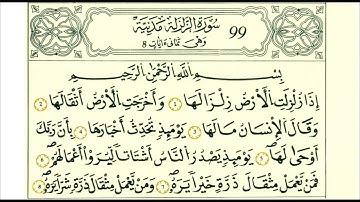 سورة الزلزلة مدنية 99
وهي ثماني ءايات 8
بِسْمِ اللَّهِ الرَّحْمَٰنِ الرَّحِيمِ
إِذَا زُلْزِلَتِ الْأَرْضُ زِلْزَالَهَا ١ وَأَخْرَجَتِ الْأَرْضُ أَثْقَالَهَا ٢
وَقَالَ الْإِنسَانُ مَا لَهَا ٣ يَوْمَئِذٍ تُحَدِّثُ أَخْبَارَهَا ٤ بِأَنَّ رَبَّكَ
أَوْحَىٰ لَهَا ٥ يَوْمَئِذٍ يَصْدُرُ النَّاسُ أَشْتَاتًا لِّيُرَوْا أَعْمَالَهُمْ ٦
فَمَن يَعْمَلْ مِثْقَالَ ذَرَّةٍ خَيْرًا يَرَهُ ٧ وَمَن يَعْمَلْ مِثْقَالَ ذَرَّةٍ شَرًّا يَرَهُ ٨